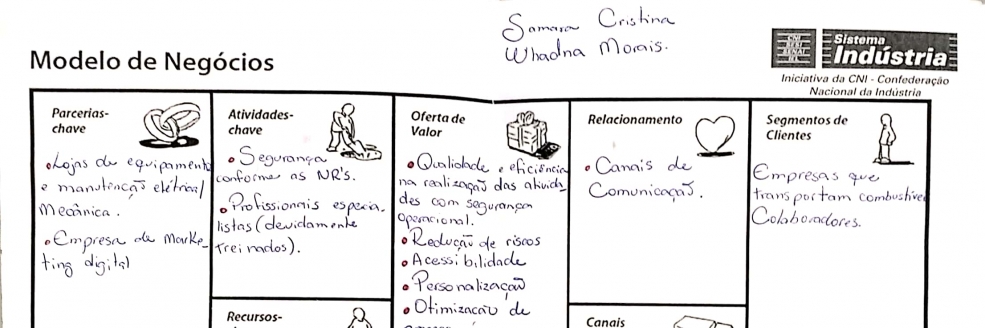 Samara Cristina
Whadna Morais.
CNI
SESI
SENAI
IEL
Sistema
Indústria
Modelo de Negócios
Iniciativa da CNI - Confederação
Nacional da Indústria
Parcerias-
chave
• Lojas de equipamento
e manutenção elétrica/
Mecânica.
• Empresa de Marke-
ting digital
Atividades-
chave
• Segurança
conforme as NR's.
• Profissionais especia-
listas (devidamente
treinados).
Recursos-
Oferta de
Valor
• Qualidade e eficiência
na realização das ativida
des com segurança
operacional.
• Redução de riscos
• Acessibilidade
• Personalização
• Otimização de
Relacionamento
• Canais de
Comunicação.
Canais
Segmentos de
Clientes
Empresas que
transportam combustíve
Colaboradores.